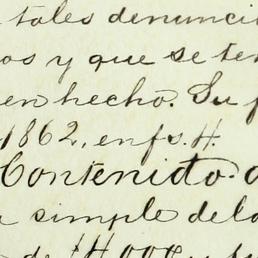 tales denunci
os y que se te
en hecho. Su f
1862, en fs. H.
Contenido. d
simple de lo
de $4.000